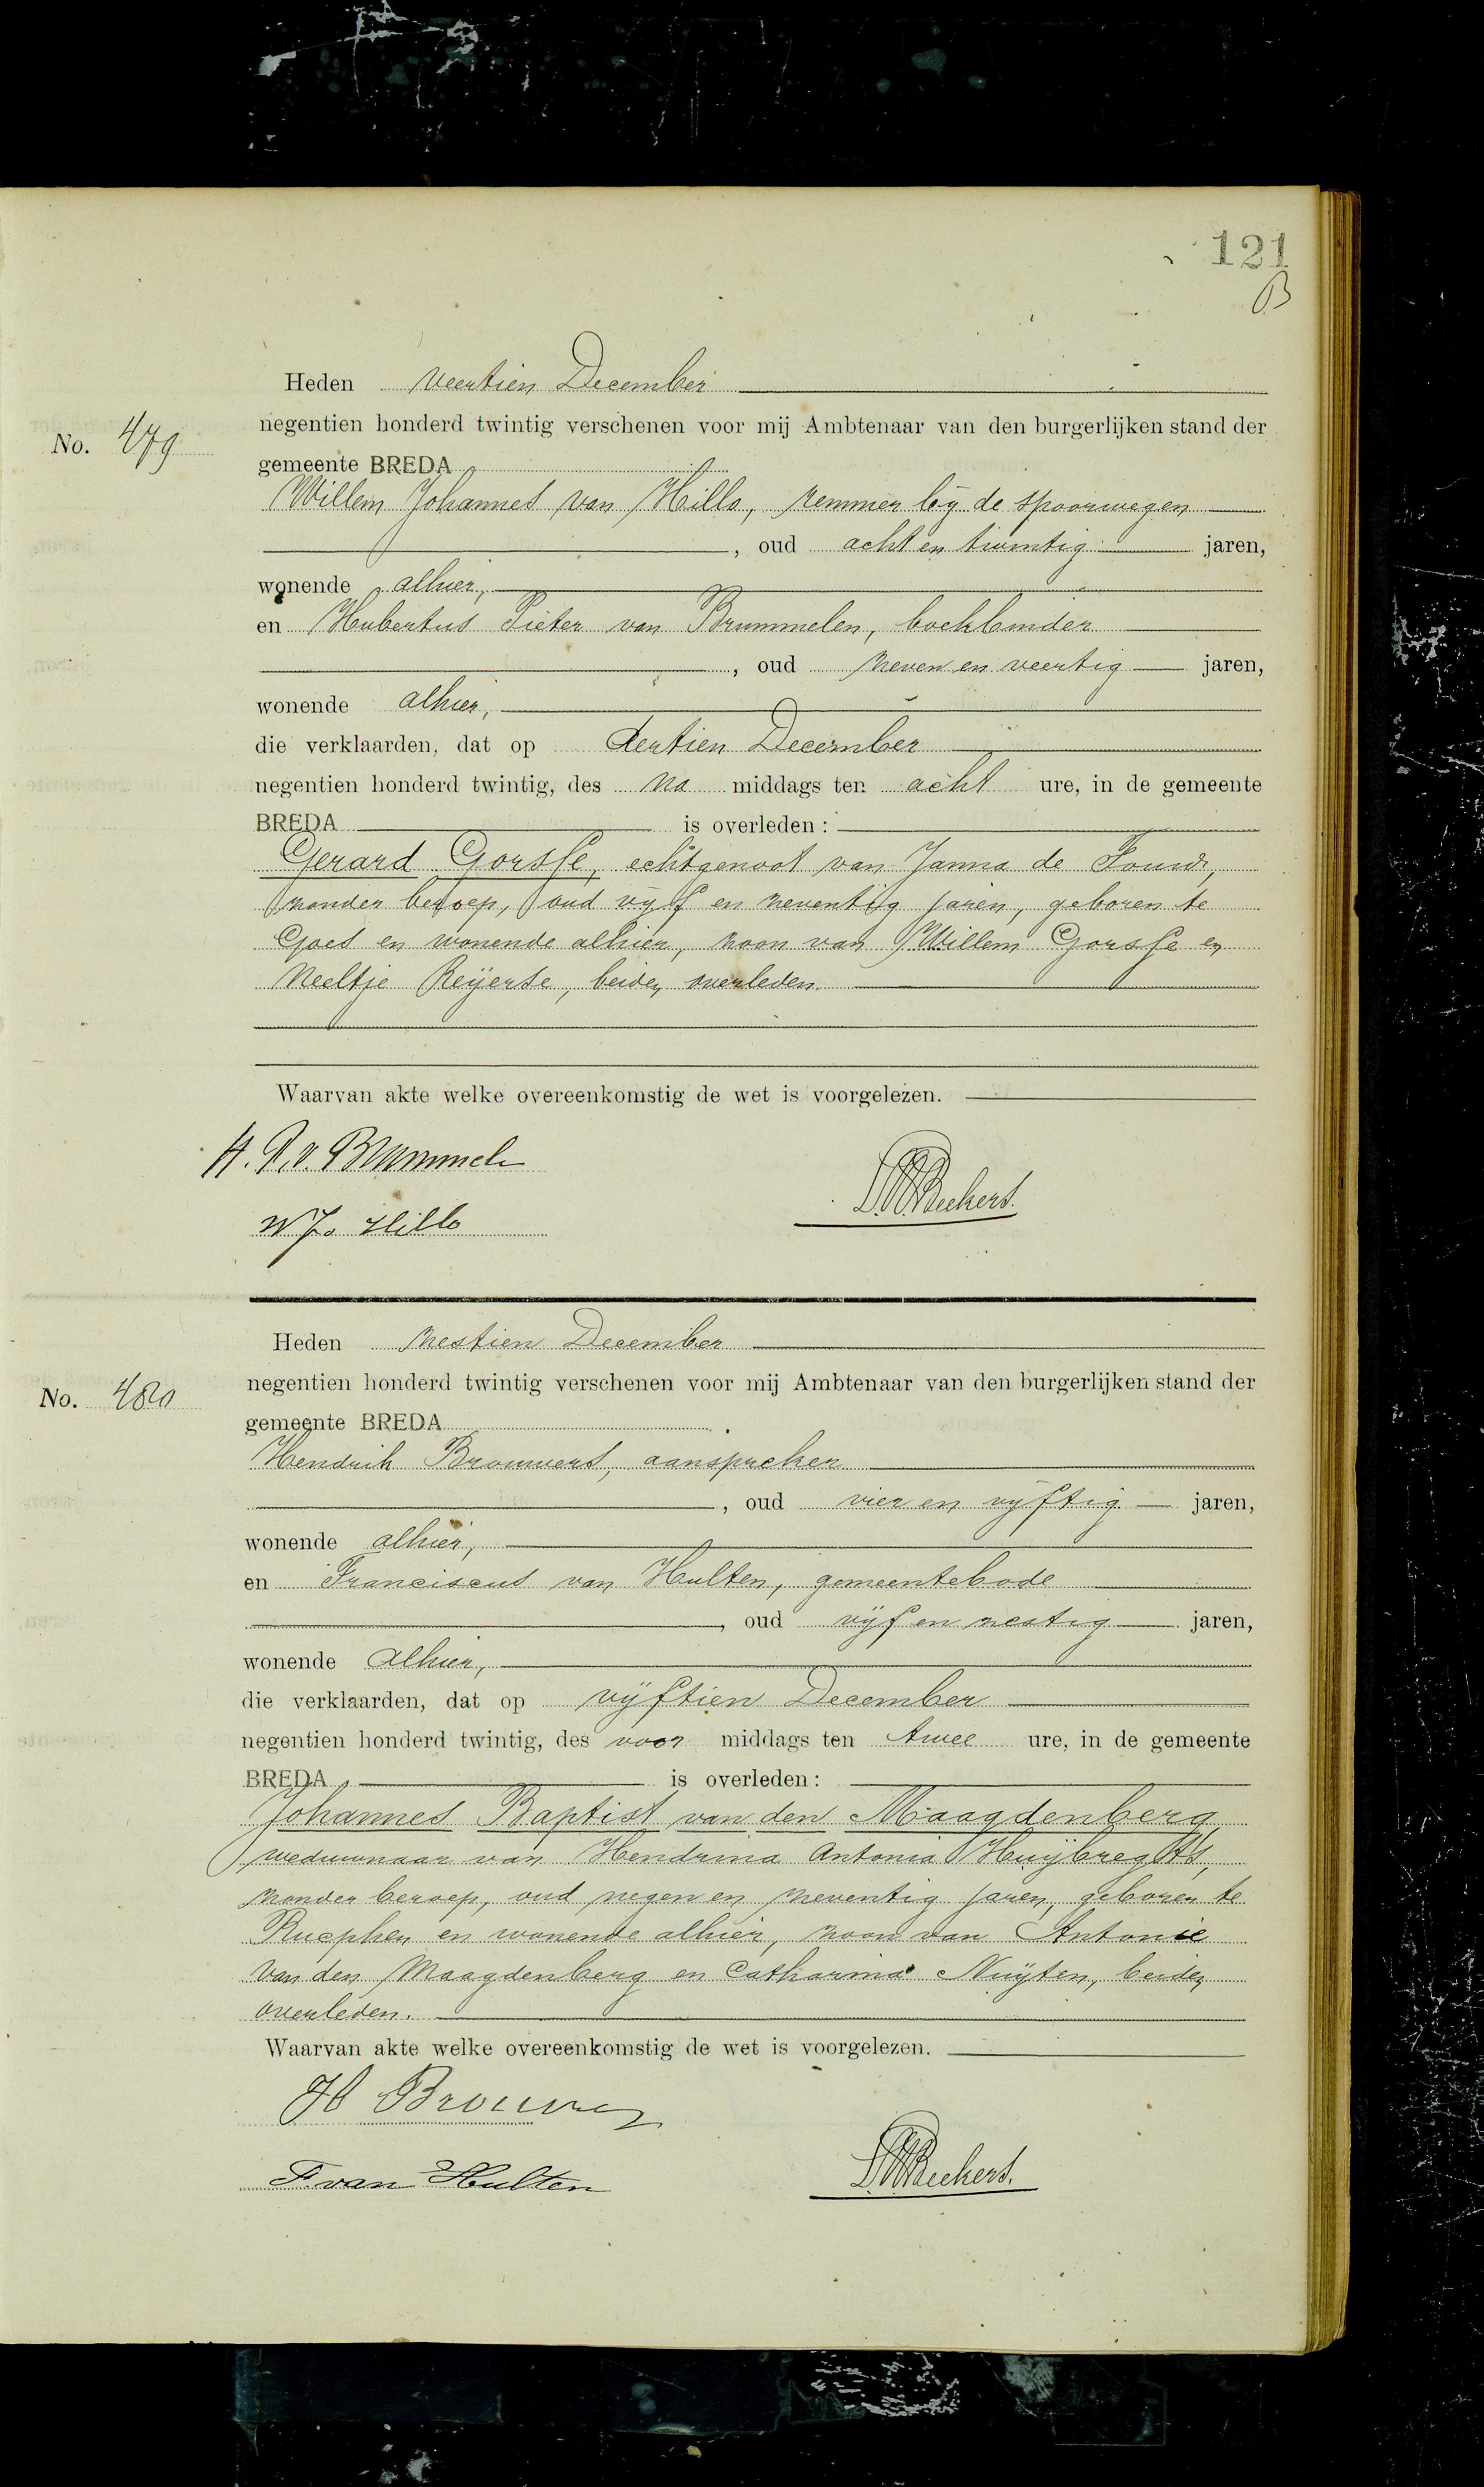 121
B
Heden veertien December
No. 479
negentien honderd twintig verschenen voor mij Ambtenaar van den burgerlijken stand der
gemeente BREDA
Willem Johannes van Hillo, remmer bij de spoorwegen
, oud acht en twintig jaren,
wonende alhier,
en Hubertus Pieter van Brummelen, boekbinder
, oud zeven en veertig jaren,
wonende alhier,
die verklaarden, dat op dertien December
negentien honderd twintig, des na middags ten acht ure, in de gemeente
BREDA is overleden:
Gerard Gorsse, echtgenoot van Janna de
zonder beroep, oud vijf en zeventig jaren, geboren te
Goes en wonende alhier, zoon van Willem Gorsse en
Neeltje Reijerse, beiden overleden.
Waarvan akte welke overeenkomstig de wet is voorgelezen.
H. P. v. Brummelen
W J. Hillo
Beckers.
Heden zestien December
No. 480
negentien honderd twintig verschenen voor mij Ambtenaar van den burgerlijken stand der
gemeente BREDA
Hendrik Brouwers, aanspreker
, oud vier en vijftig jaren,
wonende alhier,
en Franciscus van Hulten, gemeentebode
, oud vijf en zestig jaren,
wonende alhier,
die verklaarden, dat op vijftien December
negentien honderd twintig, des voor middags ten twee ure, in de gemeente
BREDA is overleden:
Johannes Baptist van den Maagdenberg
weduwnaar van Hendrina Antonia Huijbregts,
zonder beroep, oud negen en zeventig jaren, geboren te
Rucphen en wonende alhier, zoon van Antonie
van den Maagdenberg en Catharina Nuijten, beiden
overleden.
Waarvan akte welke overeenkomstig de wet is voorgelezen.
H Brouwers
F. van Hulten
Beckers.